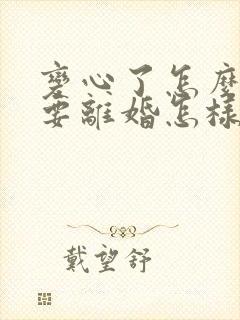 變心了怎麼
要離婚怎樣
戴望舒